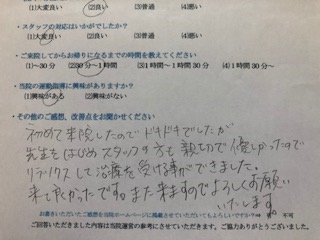 (1)大変良い (2)良い (3)普通 (4)悪い
・スタッフの対応はいかがでしたか?
(1)大変良い (2)良い (3)普通 (4)悪い
・ご来院してからお帰りになるまでの時間を教えてください
(1)~30分 (2)30分~1時間 (3)1時間~1時間30分 (4)1時間30分~
・当院の運動指導に興味がありますか?
(1)興味がある (2)興味がない
・その他のご感想、改善点をお聞かせください
初めて来院したのでドキドキでしたが
先生をはじめスタッフの方も親切で優しかったので
リラックスして治療を受ける事ができました。
来て良かったです。また来ますのでよろしくお願い
いたします。
お書きいただいたご感想を当院ホームページに掲載させていただいてもよろしいですか? 可 不可
ご回答いただきました内容は当院運営の参考にさせていただきます。ご協力ありがとうございました。